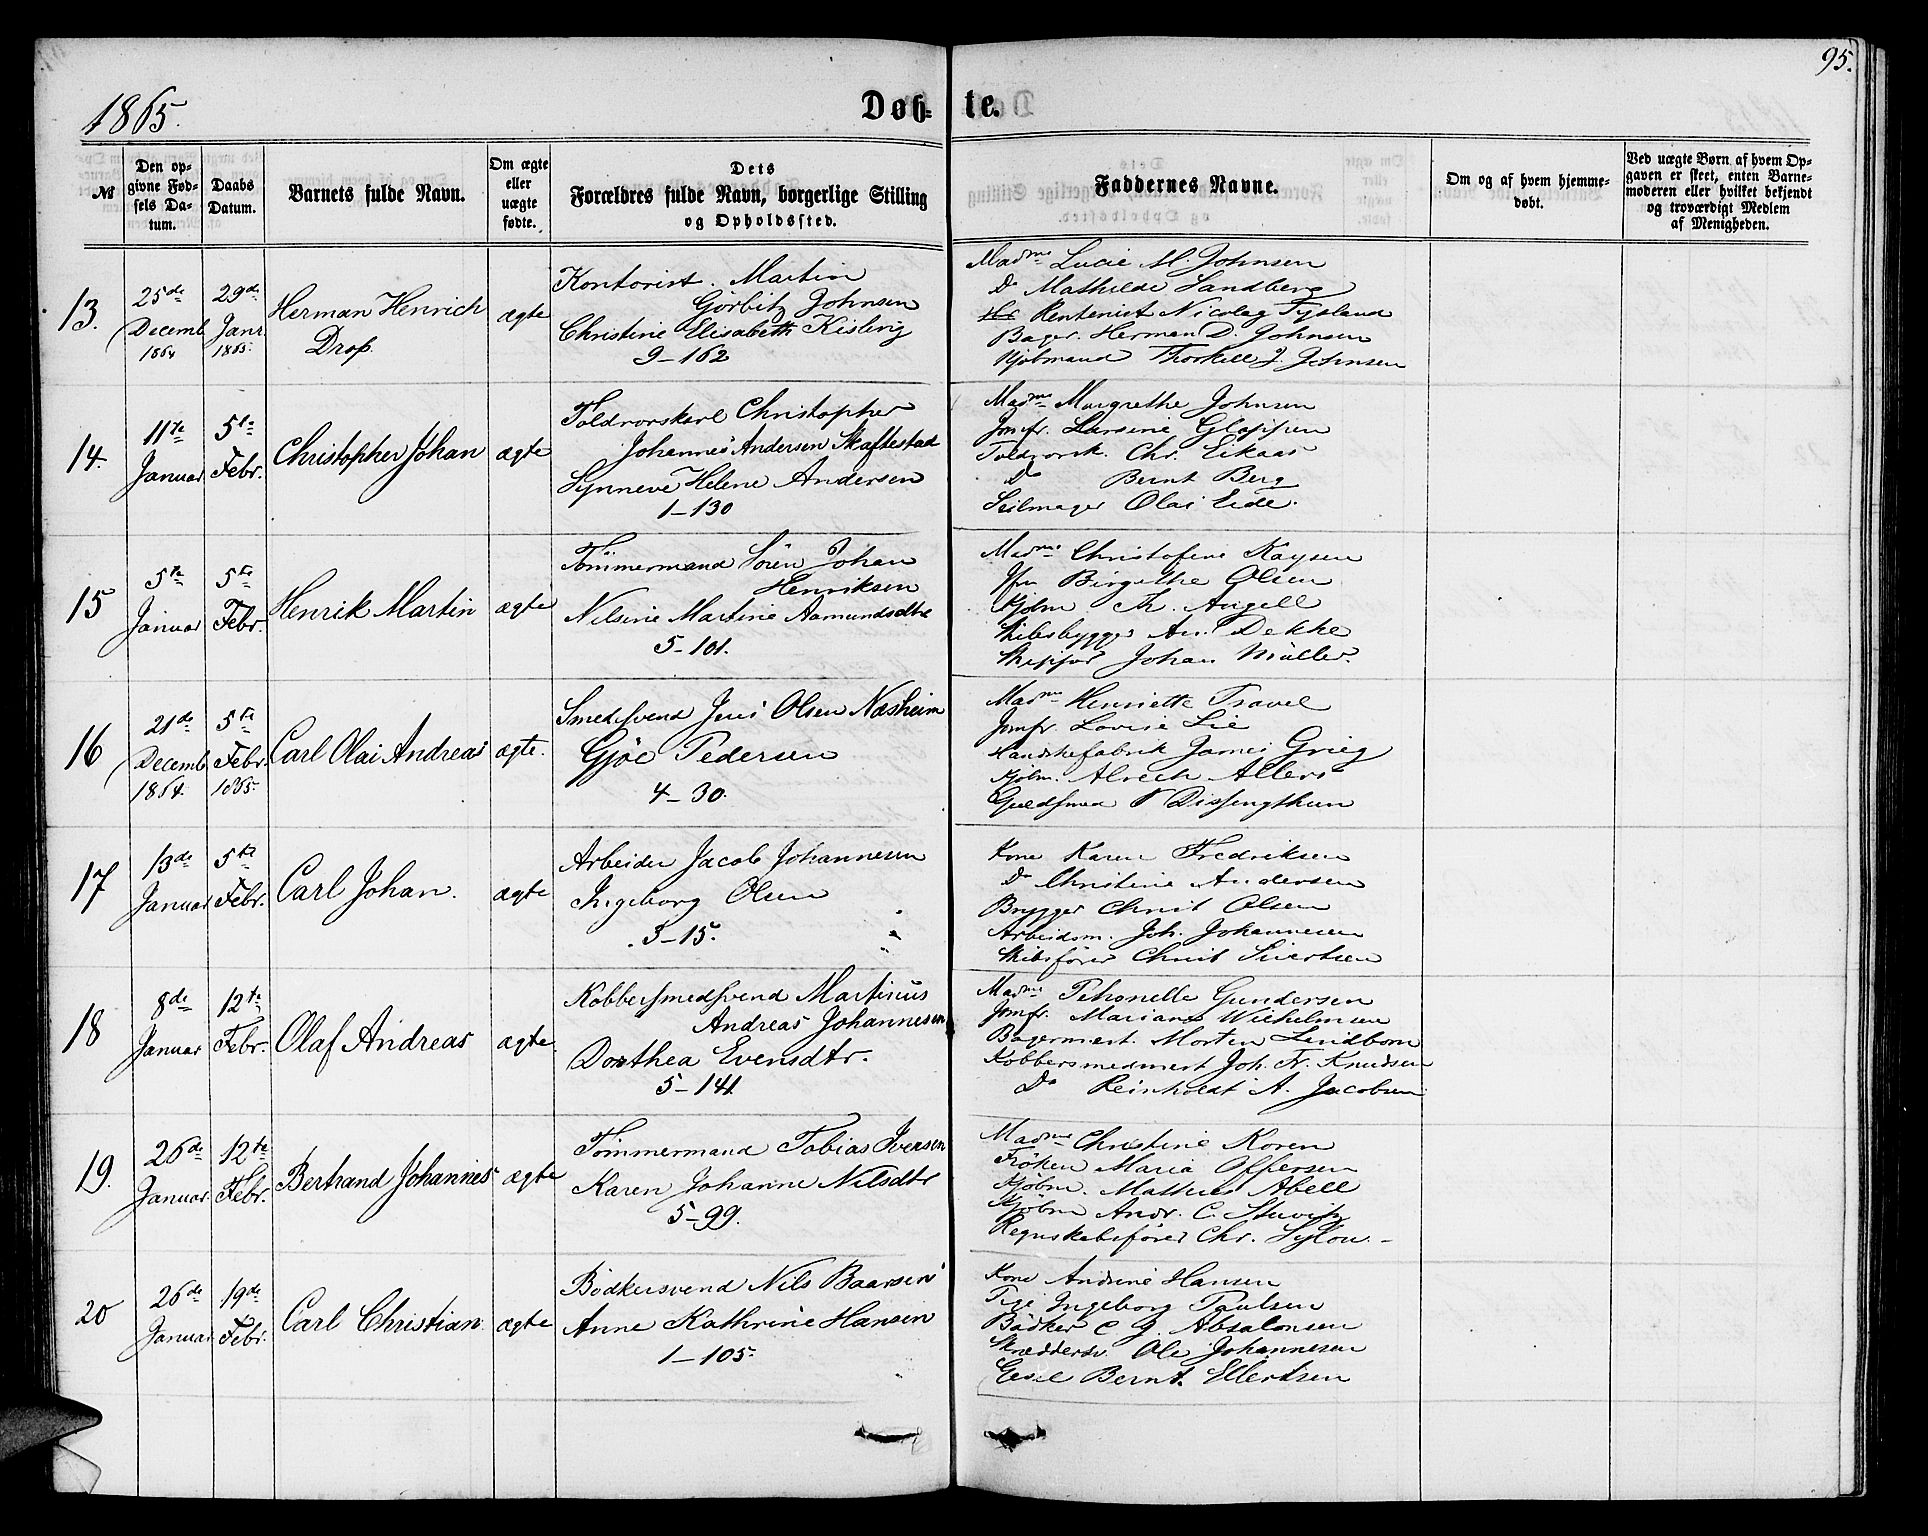 95.
1865.
Døb-
te.
№
Den opgivne Fødsels Datum.
Daabs Datum.
Barnets fulde Navn.
Om ægte eller uægte fødte.
Dets Forældres fulde Navn, borgerlige Stilling og Opholdssted.
Faddernes Navne.
Om og af hvem hjemmedøbt.
Ved uægte Børn af hvem Opgaven er skeet, enten Barnemoderen eller hvilket bekjendt og troværdigt Medlem af Menigheden.
13.
25de Decemb 1864
29de Janr 1865.
Herman Henrich
Drop.
ægte
Kontorist. Martin
Gorbitz Johnsen
Christine Elisabeth Kisling
9-162
Madme Lucie M. Johnsen
Do Mathilde Sandberg
Rentenist Nicolay Fysland
Bager. Herman D. Johnsen
Kjøbmand Thorkell J. Johnsen
14.
11te Januar
5te Febr.
Christopher Johan
ægte
Toldrorskarl Christopher
Johannes Andersen Skaftestad
Synneve Helene Andersen
1-130
Madme Margrethe Johnsen
Jomfr. Larsine Gloppen
Toldrorsk. Chr. Eikaas
Do Bernt Berg
Seilmager Olai Eide.
15
5te Januar
5te Febr.
Henrik Martin
ægte
Tömmermand Sören Johan
Henriksen
Nilsine Martine Aamundsdtr
5-101.
Madme Christofine Kaysen
Jfr Birgithe Olsen
Kjöbm Th. Angell
Skibsbygger An. Dekke
Skipper Johan Müller.
16
21de Decemb 1864.
5te Febr. 1865.
Carl Olai Andreas
ægte.
Smedsvend Jens Olsen Næsheim
Gjöe Pedersen
4-30.
Madme Henriette Travel
Jomfr. Lovise Lie
Handskefabrik James Grieg
Kjöbm. Alrech Allers
Guldsmed
17
13de Januar
5te Febr.
Carl Johan.
ægte
Arbeider Jacob Johannesen
Ingeborg Olsen
3-15.
Kone Karen Fredriksen
Do Christine Andersen
Brygger Christ Olsen
Arbeidsm. Joh. Johannesen
Skibsfører Christ Sivertsen
18
8de Januar
12te Febr.
Olaf Andreas
ægte.
Kobbersmedsvend Martinus
Andreas Johannesen
Dorthea Evensdtr.
5-141.
Madme Petronelle Gundersen
Jomfr. Mariane Wilhelmsen
Bagermest. Morten Lindbom
Kobbersmedmest Joh. Fr. Knudsen
Do Reinholdt A. Jacobsen
19.
26de Januar
12te Febr.
Bertrand Johannes
ægte
Tömmermand Tobias Iversen
Karen Johanne Nilsdtr
5-99.
Madme Christine Koren
Fröken Maria Offersen
Kjöbm. Mathias Abell
Kjöbm Andr. C. Stuwitz
Regnskabsfører Chr. Sylow.
20
26de Januar
19de Febr.
Carl Christian.
ægte
Bödkersvend Nils Baarsen
Anne Kathrine Hansen
1-105.
Kone Andrine Hansen
Pige Ingeborg Paulsen
Bödker C J. Absalonsen
Skræddersv. Ole Johannesen
Bernt. Ellertsen